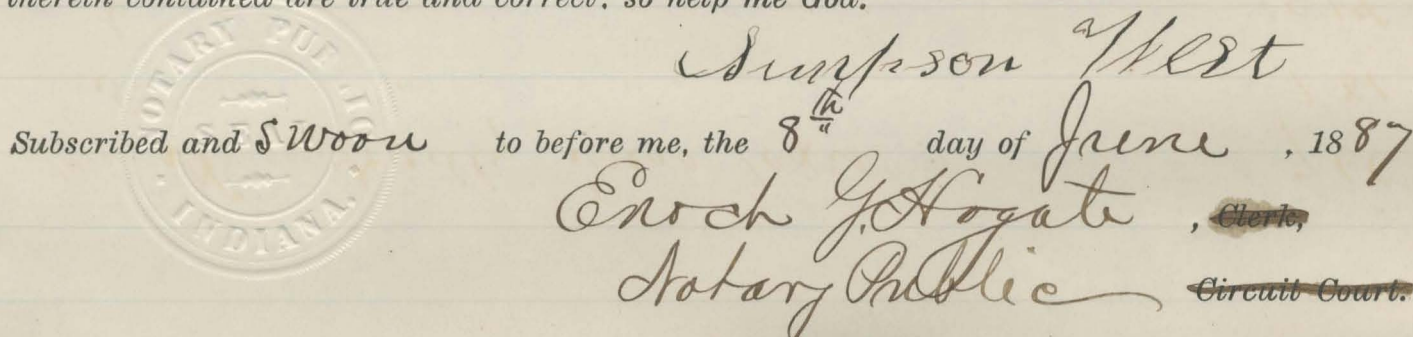 therein contained are true and correct, so help me God.
Simpson West
Subscribed and Sworn to before me, the 8th day of June , 1887
Enoch G. Hogate , Clerk,
Notary Public Circuit Court.
NOTARY PUBLIC
SEAL
INDIANA.